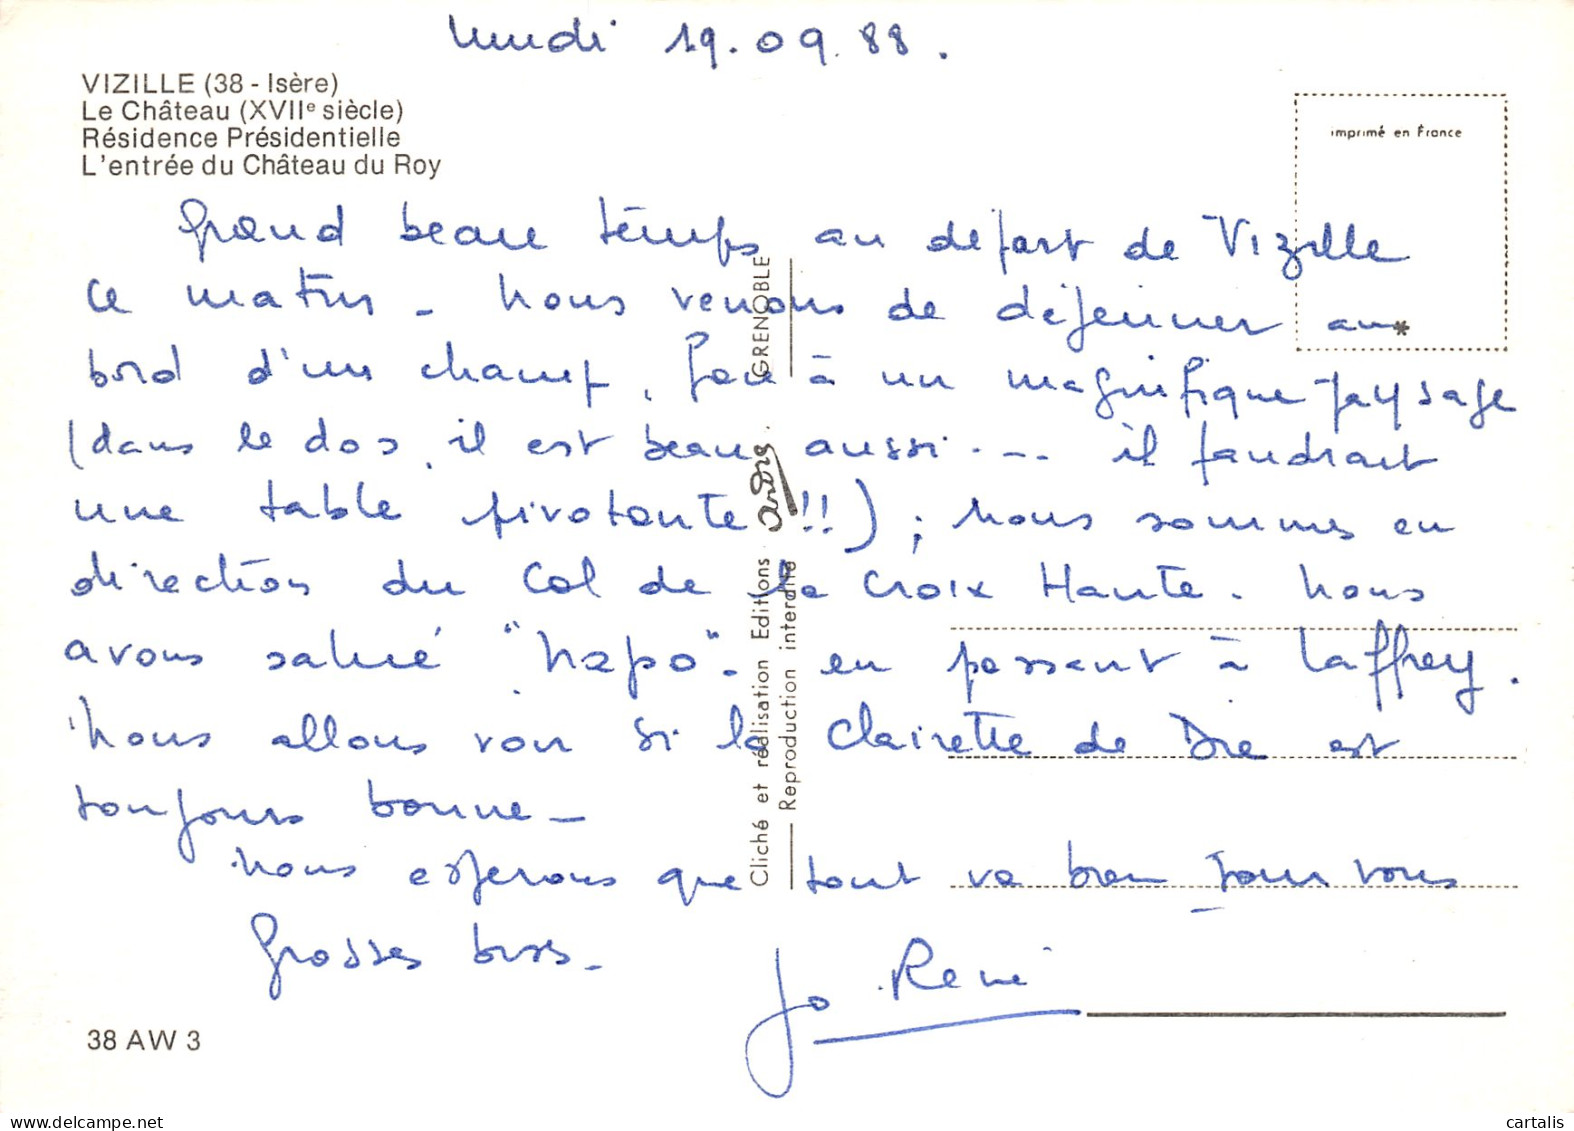 lundi 19.09.88.
VIZILLE (38 - Isère)
Le Château (XVIIe siècle)
Résidence Présidentielle
L'entrée du Château du Roy
imprimé en France
Grand beau temps au départ de Vizille
ce matin - nous venons de déjeuner au*
bord d'un champ, face à un magnifique paysage
(dans le dos, il est beau aussi.... il faudrait
une table pivotante !!) ; nous sommes en
direction du Col de la Croix Haute. Nous
avons salué "Napo" - en passant à Laffrey.
Nous allons voir si la Clairette de Die est
toujours bonne -
Nous espérons que tout va bien pour vous
Grosses bises -
Jo René
38 AW 3
Cliché et réalisation Editions André. GRENOBLE
Reproduction interdite
delcampe.net
cartalis